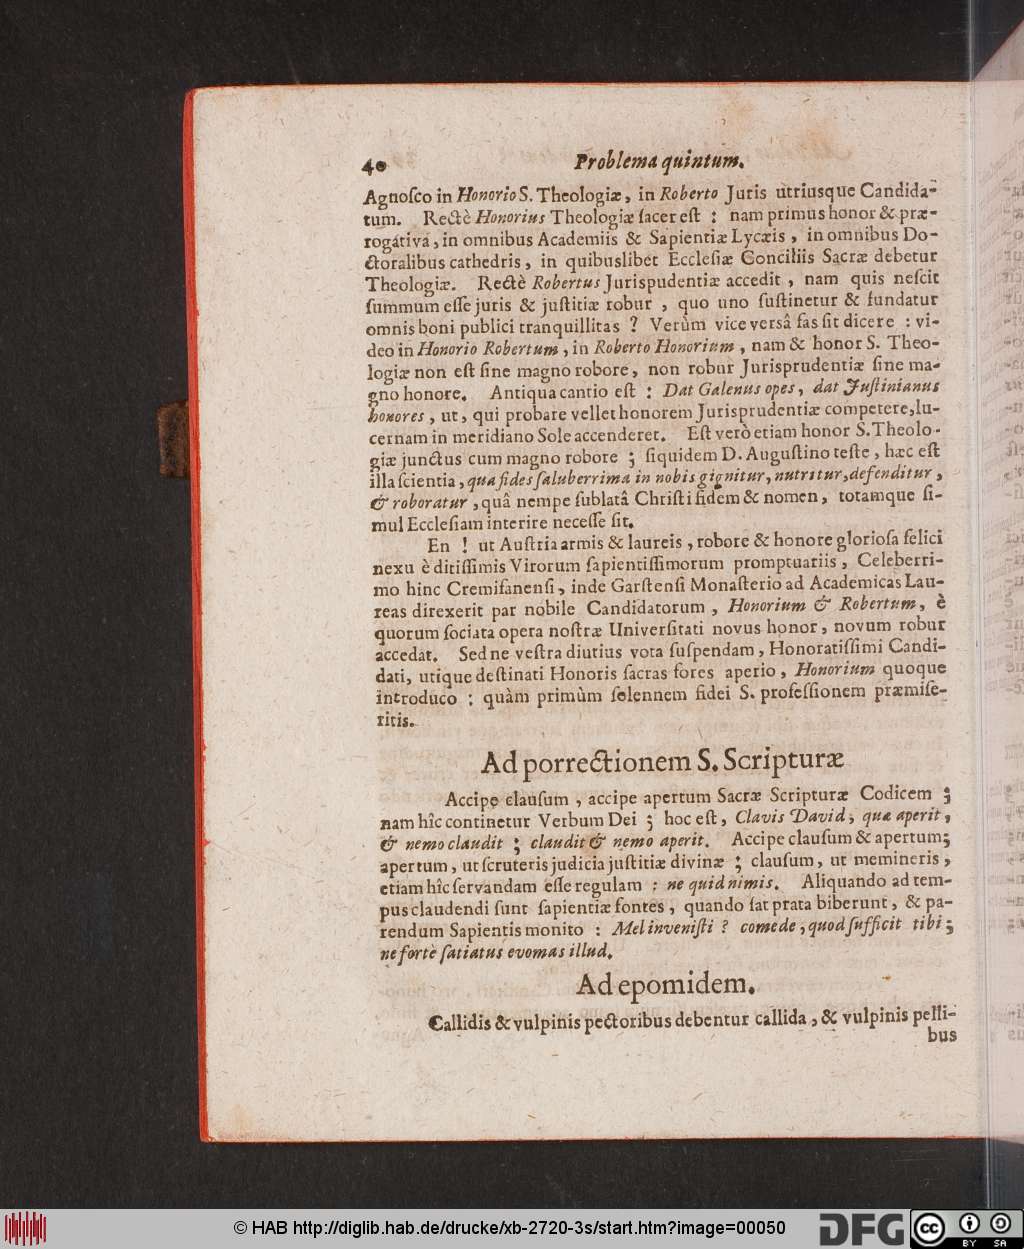 40 Problema quintum.
Agnoſco in Honorio S. Theologiæ, in Roberto Juris utriusque Candida-
tum. Rectè Honorius Theologiæ ſacer eſt : nam primus honor & præ-
rogativa, in omnibus Academiis & Sapientiæ Lycæis, in omnibus Do-
ctoralibus cathedris, in quibuslibet Eccleſiæ Conciliis Sacræ debetur
Theologiæ. Rectè Robertus Jurispudentiæ accedit, nam quis neſcit
ſummum eſſe juris & juſtitiæ robur, quo uno ſuſtinetur & fundatur
omnis boni publici tranquillitas ? Verùm vice verſâ fas ſit dicere : vi-
deo in Honorio Robertum, in Roberto Honorium, nam & honor S. Theo-
logiæ non eſt ſine magno robore, non robur Jurisprudentiæ ſine ma-
gno honore. Antiqua cantio eſt : Dat Galenus opes, dat Juſtinianus
honores, ut, qui probare vellet honorem Jurisprudentiæ competere, lu-
cernam in meridiano Sole accenderet. Eſt verò etiam honor S. Theolo-
giæ junctus cum magno robore ; ſiquidem D. Auguſtino teſte, hæc eſt
illa ſcientia, qua fides ſaluberrima in nobis gignitur, nutritur, defenditur,
& roboratur, quâ nempe ſublatâ Chriſti fidem & nomen, totamque ſi-
mul Eccleſiam interire neceſſe ſit.
En ! ut Auſtria armis & laureis, robore & honore glorioſa felici
nexu è ditiſſimis Virorum ſapientiſſimorum promptuariis, Celeberri-
mo hinc Cremifanenſi, inde Garſtenſi Monaſterio ad Academicas Lau-
reas direxerit par nobile Candidatorum, Honorium & Robertum, è
quorum ſociata opera noſtræ Univerſitati novus honor, novum robur
accedat. Sed ne veſtra diutius vota ſuſpendam, Honoratiſſimi Candi-
dati, utique deſtinati Honoris ſacras fores aperio, Honorium quoque
introduco : quàm primùm ſolennem fidei S. profeſſionem præmiſe-
ritis.
Ad porrectionem S. Scripturæ
Accipe clauſum, accipe apertum Sacræ Scripturæ Codicem ;
nam hîc continetur Verbum Dei ; hoc eſt, Clavis David, quæ aperit,
& nemo claudit ; claudit & nemo aperit. Accipe clauſum & apertum;
apertum, ut ſcruteris judicia juſtitiæ divinæ ; clauſum, ut memineris,
etiam hîc ſervandam eſſe regulam : ne quid nimis. Aliquando ad tem-
pus claudendi ſunt ſapientiæ fontes, quando ſat prata biberunt, & pa-
rendum Sapientis monito : Mel inveniſti ? comede, quod ſufficit tibi ;
ne fortè ſatiatus evomas illud.
Ad epomidem.
Callidis & vulpinis pectoribus debentur callida, & vulpinis pelli-
bus
© HAB http://diglib.hab.de/drucke/xb-2720-3s/start.htm?image=00050
DFG
cc BY SA